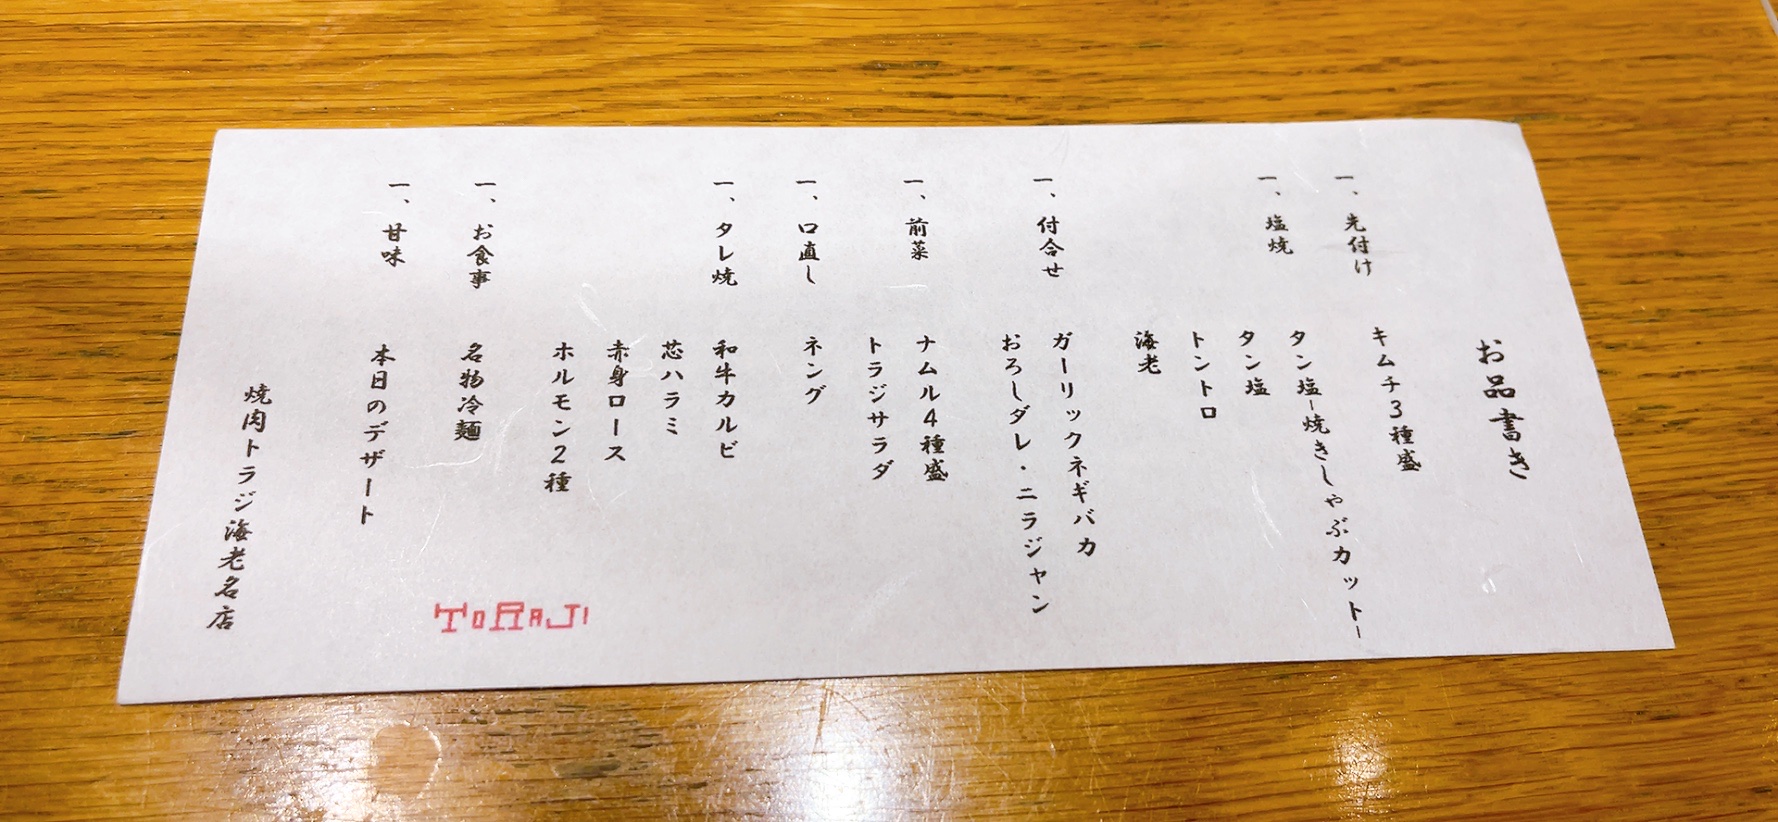 お品書き
一、先付け キムチ3種盛
一、塩焼 タン塩-焼きしゃぶカット-
タン塩
トントロ
海老
一、付合せ ガーリックネギバカ
おろしダレ・ニラジャン
一、前菜 ナムル4種盛
トラジサラダ
一、口直し ネング
一、タレ焼 和牛カルビ
芯ハラミ
赤身ロース
ホルモン2種
一、お食事 名物冷麺
一、甘味 本日のデザート
焼肉トラジ海老名店
TORAJI